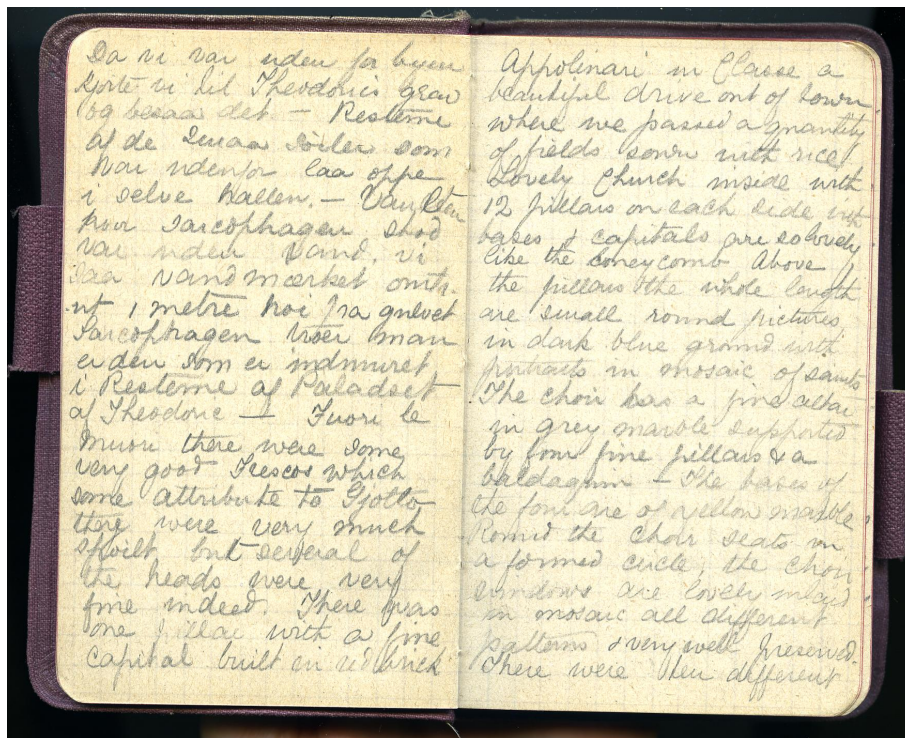 Da vi var uden for byen
kjorte vi til Theodoris grav
og besaa det. — Resterne
af de Smaa Söiler som
har udenfor laa oppe
i selve Hallen. — Vandet
hvor Sarcophagen stod
var uden Vand. vi
saa vandmærket omtr-
nt 1 metre höi fra gulvet
Sarcophagen troer man
er den som er indmuret
i Resterne af Paladset
af Theodoric — Fuori le
Muori there were some
very good Frescos which
some attribute to Giotto
they were very much
spoilt but several of
the heads were very
fine indeed. There was
one pillar with a fine
capital built in red brick
Appolinari in Classe a
beautiful drive out of town
where we passed a quantity
of fields sown with rice!
Lovely Church inside with
12 pillars on each side
bases & capitals are so lovely
like the coneycomb Above
the pillars & the whole length
are small round pictures
in dark blue ground with
portraits in mosaic of saints
The choir has a fine altar
in grey marble supported
by four fine pillars & a
baldaquin — The bases of
the four are of yellow marble
Round the choir seats in
a formed circle, the choir
windows are lovely inlaid
in mosaic all different
patterns & very well preserved.
There were then different